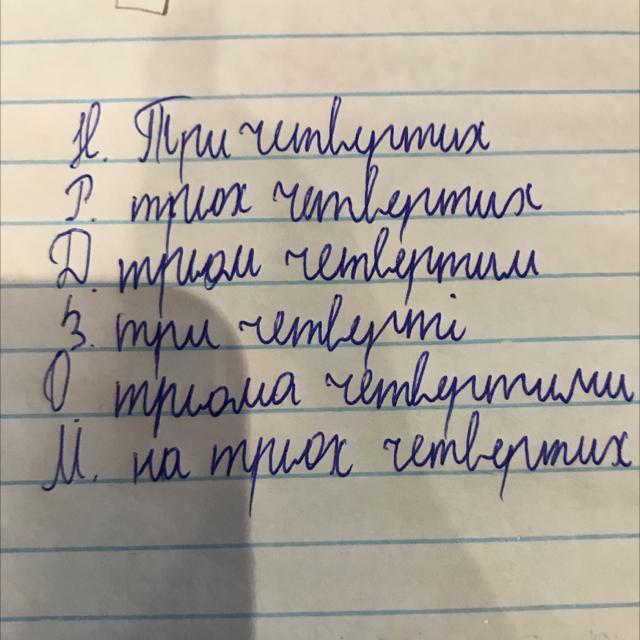 Н. Три четвертих
Р. трьох четвертих
Д. трьом четвертим
З. три четверті
О трьома четвертими
М. на трьох четвертих